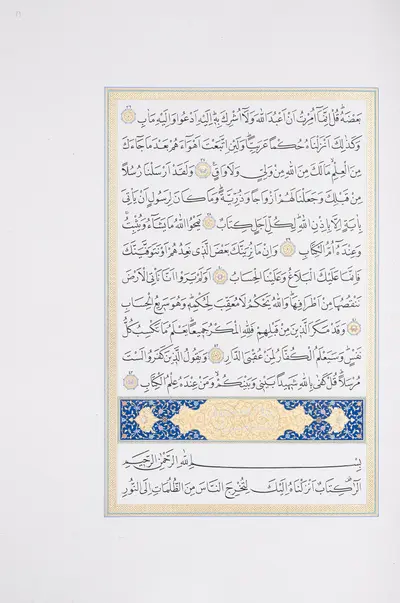 بَعْضَهُ قُلْ اِنَّمَٓا اُمِرْتُ اَنْ اَعْبُدَ اللّٰهَ وَلَٓا اُشْرِكَ بِهِ اِلَيْهِ اَدْعُوا وَاِلَيْهِ مَاٰبِ
وَكَذٰلِكَ اَنْزَلْنَاهُ حُكْمًا عَرَبِيًّا وَلَئِنِ اتَّبَعْتَ اَهْوَٓاءَهُمْ بَعْدَ مَا جَٓاءَكَ
مِنَ الْعِلْمِ مَا لَكَ مِنَ اللّٰهِ مِنْ وَلِيٍّ وَلَا وَاقٍ وَلَقَدْ اَرْسَلْنَا رُسُلًا
مِنْ قَبْلِكَ وَجَعَلْنَا لَهُمْ اَزْوَاجًا وَذُرِّيَّةً وَمَا كَانَ لِرَسُولٍ اَنْ يَأْتِيَ
بِاٰيَةٍ اِلَّا بِاِذْنِ اللّٰهِ لِكُلِّ اَجَلٍ كِتَابٌ يَمْحُوا اللّٰهُ مَا يَشَٓاءُ وَيُثْبِتُ
وَعِنْدَهُٓ اُمُّ الْكِتَابِ وَاِنْ مَا نُرِيَنَّكَ بَعْضَ الَّذِي نَعِدُهُمْ اَوْ نَتَوَفَّيَنَّكَ
فَاِنَّمَا عَلَيْكَ الْبَلَاغُ وَعَلَيْنَا الْحِسَابُ اَوَلَمْ يَرَوْا اَنَّا نَأْتِي الْاَرْضَ
نَنْقُصُهَا مِنْ اَطْرَافِهَا وَاللّٰهُ يَحْكُمُ لَا مُعَقِّبَ لِحُكْمِهِ وَهُوَ سَرِيعُ الْحِسَابِ
وَقَدْ مَكَرَ الَّذِينَ مِنْ قَبْلِهِمْ فَلِلّٰهِ الْمَكْرُ جَمِيعًا يَعْلَمُ مَا تَكْسِبُ كُلُّ
نَفْسٍ وَسَيَعْلَمُ الْكُفَّارُ لِمَنْ عُقْبَى الدَّارِ وَيَقُولُ الَّذِينَ كَفَرُوا لَسْتَ
مُرْسَلًا قُلْ كَفٰى بِاللّٰهِ شَهِيدًا بَيْنِي وَبَيْنَكُمْ وَمَنْ عِنْدَهُ عِلْمُ الْكِتَابِ
بِسْمِ اللّٰهِ الرَّحْمٰنِ الرَّحِيمِ
الٓرٰ كِتَابٌ اَنْزَلْنَاهُ اِلَيْكَ لِتُخْرِجَ النَّاسَ مِنَ الظُّلُمَاتِ اِلَى النُّورِ